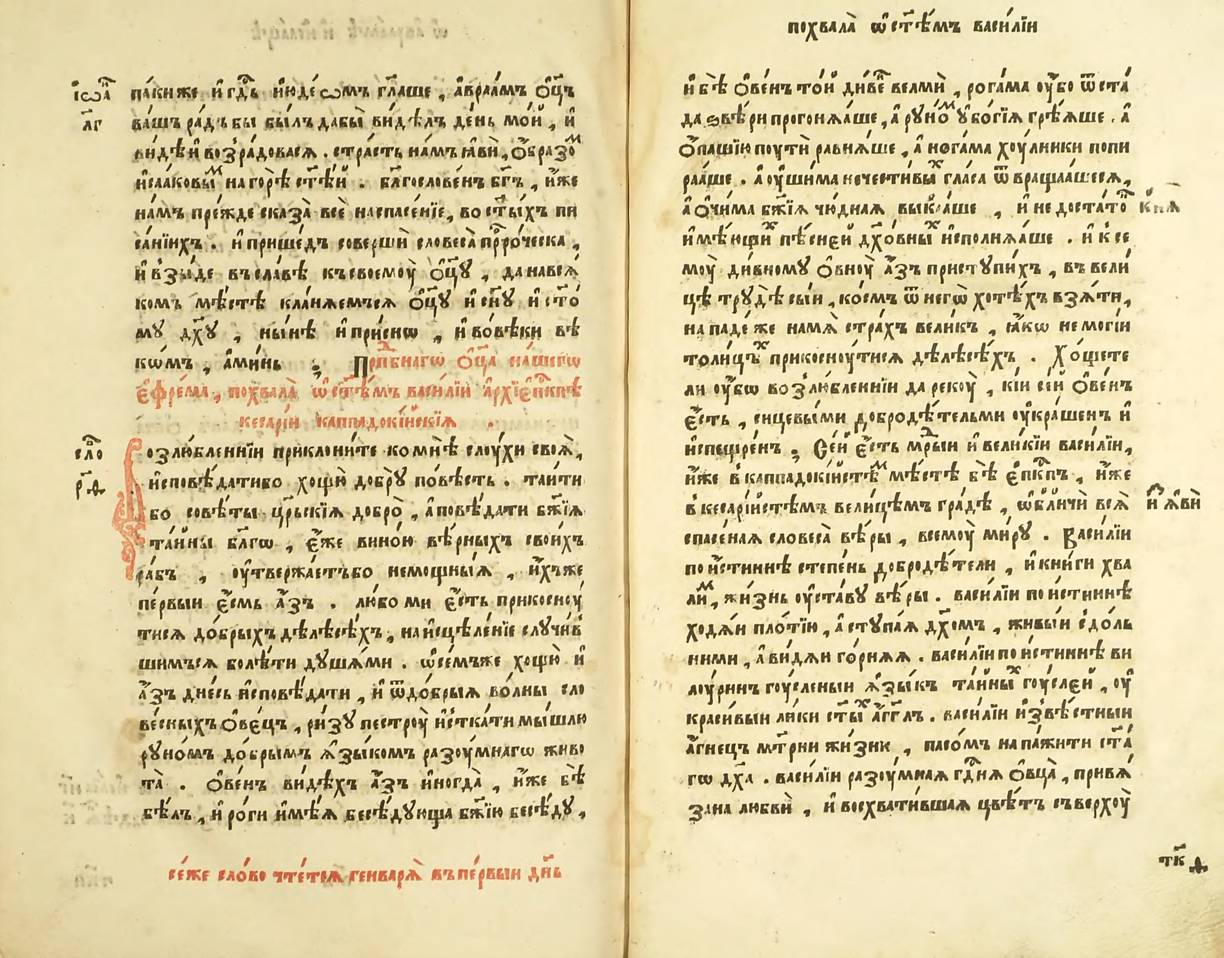 па́ки же и҆ гдⷭ҇ь и҆ꙋде́ѡмъ гл҃аше , а҆враа́мъ ѻ҆ц҃ъ
і҆ѡаⷩ҇
ва́шъ ра́дъ бы бы́лъ дабы̀ ви́дѣлъ де́нь мо́й , и҆
л҃г
ви́дѣ и҆ возра́довасѧ . стра́сть на́мъ ꙗ҆вѝ , ѻ҆́бразоⷨ
и҆саа́ковыⷨ на горѣ̀ ст҃ѣ́й . бл҃гослове́нъ бг҃ъ , и҆́же
на́мъ пре́жде сказа̀ всѐ на спасе́нїе , во ст҃ы́хъ пи
са́нїихъ . и҆ прише́дъ совершѝ словеса̀ прⷪ҇ро́ческа ,
и҆ взы́де въ сла́вѣ къ своемꙋ̀ ѻ҆ц҃ꙋ̀ , да на всѧ́
комъ мѣ́стѣ кла́нѧемъсѧ ѻ҆ц҃ꙋ̀ и҆ сн҃ꙋ и҆ ст҃о́
мꙋ дх҃ꙋ , ны́нѣ и҆ при́снѡ , и҆ во вѣ́ки вѣ
кѡ́мъ , а҆ми́нь : Прпⷣбнагѡ ѻ҆ц҃а̀ на́шегѡ
є҆фре́ма , похвала̀ ѡ҆ ст҃ѣ́мъ васи́лїи а҆рхїеⷫ҇пкпѣ
кесарі́и каппадокі́йскїѧ .
Возлю́бленнїи приклони́те ко мнѣ̀ слꙋ́хи своѧ̀ ,
сло́ⷡ
и҆сповѣ́дати бо хощꙋ̀ до́брꙋ по́вѣсть . таи́ти
бо совѣ́ты цр҃ьскїѧ добрò , а҆ повѣ́дати бж҃їѧ
та́йны бл҃гѡ , є҆́же вино́ю вѣ́рныхъ свои́хъ
ра́бъ , ᲂу҆твержа́етъ бо немощны́ѧ , и҆́хъ же
пе́рвыи є҆́смь а҆́зъ . лю́бо ми є҆́сть прикоснꙋ́
тисѧ до́брыхъ дѣ́лесѣхъ , на и҆сцѣле́нїе слꙋчи́в
шимъсѧ болѣ́ти дꙋша́ми . ѡ҆ се́мъ же хощꙋ̀ и҆
а҆́зъ дне́сь и҆сповѣ́дати , и҆ ѿ до́брыѧ во́лны сло
ве́сныхъ ѻ҆ве́цъ , ри́зꙋ пестрꙋ̀ и҆стка́ти мы́шлю
рꙋно́мъ до́брымъ ѧ҆зы́комъ разꙋ́мнагѡ живо
та̀ . ѻ҆ве́нъ ви́дѣхъ а҆́зъ и҆ногда̀ , и҆́же бѣ̀
бѣ́лъ , и҆ ро́ги и҆мѣ́ѧ бесѣ́дꙋюща бж҃їю бесѣ́дꙋ ,
се́же сло́во чте́тсѧ генварѧ̀ въ пе́рвыи дн҃ь
похвала̀ ѡ҆ ст҃ѣ́мъ васи́лїи
и҆ бѣ̀ ѻ҆ве́нъ то́й ди́венъ велмѝ , рога́ма ᲂу҆́бо ѿ ста́
да ѕвѣ́ри прогонѧ́ше , а҆ рꙋно́ⷨ ᲂу҆бо́гїѧ грѣ́ѧше . а҆
ѻ҆па́шїю пꙋтѝ равнѧ́ше , а҆ нога́ма хꙋ́лники попи
ра́аше . а҆ ᲂу҆ши́ма нечести́выⷯ гла́са ѿвраща́ашесѧ ,
а҆ ѻ҆чи́ма бж҃їѧ чю́днаѧ выка́ше , и҆ недостатоⷦ҇
и҆мѣ́ющиⷯ пѣ́сней дх҃о́вныⷯ и҆сполнѧ́аше . и҆ к се
мꙋ̀ ди́вномꙋ ѻ҆внꙋ̀ а҆́зъ пристꙋпи́хъ , въ вели́
цѣ трꙋ́дѣ сы́и , ко́смъ ѿ негѡ̀ хотѣ́хъ взѧ́ти ,
нападе́ же на мѧ̀ стра́хъ вели́къ , ꙗ҆́кѡ не могі́й
толи́цѣⷯ прикоснꙋ́тисѧ дѣ́лесѣхъ . Хо́щете
ли ᲂу҆́бѡ возлю́бленнїи да рекꙋ̀ , кі́й се́й ѻ҆ве́нъ
є҆́сть , сицевы́ми добродѣ́тельми ᲂу҆кра́шенъ и҆
и҆спещре́нъ , Се́й є҆́сть мⷣрыи и҆ вели́кїи васи́лїи ,
и҆́же в каппадокі́йстѣⷨ мѣ́стѣ бѣ̀ є҆пⷭ҇кпъ , и҆́же
в кесарі́йстѣмъ вели́цѣмъ гра́дѣ , ѡ҆бличѝ всѧ̀
и҆ ꙗ҆вѝ
спасе́наѧ словеса̀ вѣ́ры , всемꙋ̀ ми́рꙋ . Васи́лїи
по и҆́стиннѣ степе́нь добродѣ́тели , и҆ кни́ги хва
ли́ⷨ , жи́знь ᲂу҆ста́вꙋ вѣ́ры . васи́лїи по и҆́стиннѣ
ходѧ́и пло́тїю , а҆ стꙋпа́ѧ дх҃омъ , живы́и с до́ль
ними , а҆ ви́дѧи го́рнѧѧ . васи́лїи по и҆́стиннѣ ви
лоурин гꙋ́сленыи ѧ҆зы́къ та́йныⷯ гꙋ́слей , ᲂу҆
краси́выи ли́ки ст҃ы́ⷯ а҆́гг҃лъ . васи́лїи и҆звѣ́стныи
а҆́гнецъ мт҃рни жи́зни , пасо́мъ на па́жити ст҃а́
гѡ дх҃а . васи́лїи разꙋ́мнаѧ гдⷭ҇нѧ ѻ҆вца̀ , привѧ́
зана любви́ , и҆ восхвати́вшаѧ цвѣ́тъ съ верхꙋ̀